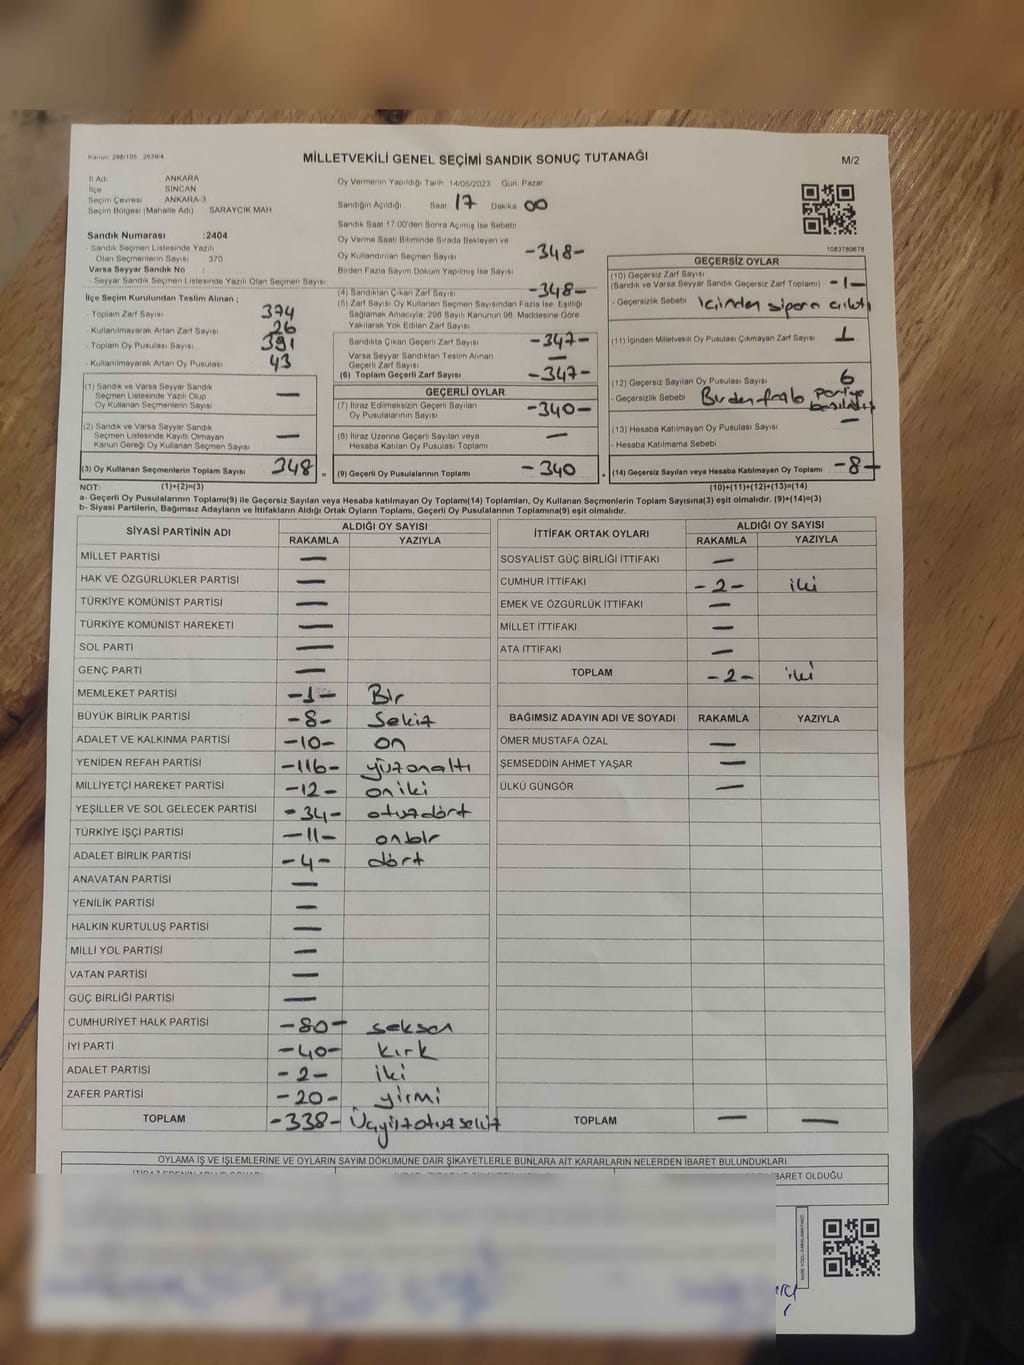 Kanun: 298/105 2839/4
MİLLETVEKİLİ GENEL SEÇİMİ SANDIK SONUÇ TUTANAĞI
M/2
İl Adı ANKARA
İlçe SİNCAN
Seçim Çevresi ANKARA-3
Seçim Bölgesi (Mahalle Adı) SARAYCIK MAH
Sandık Numarası :2404
- Sandık Seçmen Listesinde Yazılı
Olan Seçmenlerin Sayısı 370
Varsa Seyyar Sandık No :
- Seyyar Sandık Seçmen Listesinde Yazılı Olan Seçmen Sayısı
İlçe Seçim Kurulundan Teslim Alınan ;
- Toplam Zarf Sayısı 374
- Kullanılmayarak Artan Zarf Sayısı 26
- Toplam Oy Pusulası Sayısı 391
- Kullanılmayarak Artan Oy Pusulası 43
(1) Sandık ve Varsa Seyyar Sandık
Seçmen Listesinde Yazılı Olup
Oy Kullanan Seçmenlerin Sayısı —
(2) Sandık ve Varsa Seyyar Sandık
Seçmen Listesinde Kayıtlı Olmayan
Kanun Gereği Oy Kullanan Seçmen Sayısı —
(3) Oy Kullanan Seçmenlerin Toplam Sayısı 348 =
Oy Vermenin Yapıldığı Tarih 14/05/2023 Gün Pazar
Sandığın Açıldığı Saat 17 Dakika 00
Sandık Saat 17:00'den Sonra Açılmış İse Sebebi
Oy Verme Saati Bitiminde Sırada Bekleyen ve
Oy Kullandırılan Seçmen Sayısı -348-
Birden Fazla Sayım Döküm Yapılmış İse Sayısı
(4) Sandıktan Çıkan Zarf Sayısı -348-
(5) Zarf Sayısı Oy Kullanan Seçmen Sayısından Fazla İse, Eşitliği
Sağlamak Amacıyla, 298 Sayılı Kanunun 98. Maddesine Göre
Yakılarak Yok Edilen Zarf Sayısı
Sandıkta Çıkan Geçerli Zarf Sayısı -347-
Varsa Seyyar Sandıktan Teslim Alınan
Geçerli Zarf Sayısı —
(6) Toplam Geçerli Zarf Sayısı -347-
GEÇERLİ OYLAR
(7) İtiraz Edilmeksizin Geçerli Sayılan
Oy Pusulalarının Sayısı -340-
(8) İtiraz Üzerine Geçerli Sayılan veya
Hesaba Katılan Oy Pusulası Sayısı —
(9) Geçerli Oy Pusulalarının Toplamı -340
1083780678
GEÇERSİZ OYLAR
(10) Geçersiz Zarf Sayısı
(Sandık ve Varsa Seyyar Sandık Geçersiz Zarf Toplamı) -1-
- Geçersizlik Sebebi içinden çıktı
(11) İçinden Milletvekili Oy Pusulası Çıkmayan Zarf Sayısı 1
(12) Geçersiz Sayılan Oy Pusulası Sayısı 6
- Geçersizlik Sebebi Birden fazla partiye
(13) Hesaba Katılmayan Oy Pusulası Sayısı —
- Hesaba Katılmama Sebebi
(14) Geçersiz Sayılan veya Hesaba Katılmayan Oy Toplamı -8-
NOT: (1)+(2)=(3) (10)+(11)+(12)+(13)=(14)
a- Geçerli Oy Pusulalarının Toplamı(9) ile Geçersiz Sayılan veya Hesaba Katılmayan Oy Toplamı(14) Toplamları, Oy Kullanan Seçmenlerin Toplam Sayısına(3) eşit olmalıdır. (9)+(14)=(3)
b- Siyasi Partilerin, Bağımsız Adayların ve İttifakların Aldığı Ortak Oyların Toplamı, Geçerli Oy Pusulalarının Toplamına(9) eşit olmalıdır.
SİYASİ PARTİNİN ADI ALDIĞI OY SAYISI
RAKAMLA YAZIYLA
MİLLET PARTİSİ —
HAK VE ÖZGÜRLÜKLER PARTİSİ —
TÜRKİYE KOMÜNİST PARTİSİ —
TÜRKİYE KOMÜNİST HAREKETİ —
SOL PARTİ —
GENÇ PARTİ —
MEMLEKET PARTİSİ -1- Bir
BÜYÜK BİRLİK PARTİSİ -8- sekiz
ADALET VE KALKINMA PARTİSİ -10- on
YENİDEN REFAH PARTİSİ -116- yüzonaltı
MİLLİYETÇİ HAREKET PARTİSİ -12- oniki
YEŞİLLER VE SOL GELECEK PARTİSİ -34- otuzdört
TÜRKİYE İŞÇİ PARTİSİ -11- onbir
ADALET BİRLİK PARTİSİ -4- dört
ANAVATAN PARTİSİ —
YENİLİK PARTİSİ —
HALKIN KURTULUŞ PARTİSİ —
MİLLİ YOL PARTİSİ —
VATAN PARTİSİ —
GÜÇ BİRLİĞİ PARTİSİ —
CUMHURİYET HALK PARTİSİ -80- seksen
İYİ PARTİ -40- kırk
ADALET PARTİSİ -2- iki
ZAFER PARTİSİ -20- yirmi
TOPLAM -338- Üçyüzotuzsekiz
İTTİFAK ORTAK OYLARI ALDIĞI OY SAYISI
RAKAMLA YAZIYLA
SOSYALİST GÜÇ BİRLİĞİ İTTİFAKI —
CUMHUR İTTİFAKI -2- iki
EMEK VE ÖZGÜRLÜK İTTİFAKI —
MİLLET İTTİFAKI —
ATA İTTİFAKI —
TOPLAM -2- iki
BAĞIMSIZ ADAYIN ADI VE SOYADI RAKAMLA YAZIYLA
ÖMER MUSTAFA ÖZAL —
ŞEMSEDDİN AHMET YAŞAR —
ÜLKÜ GÜNGÖR —
TOPLAM — —
OYLAMA İŞ VE İŞLEMLERİNE VE OYLARIN SAYIM DÖKÜMÜNE DAİR ŞİKAYETLERLE BUNLARA AİT KARARLARIN NELERDEN İBARET BULUNDUKLARI
İBARET OLDUĞU